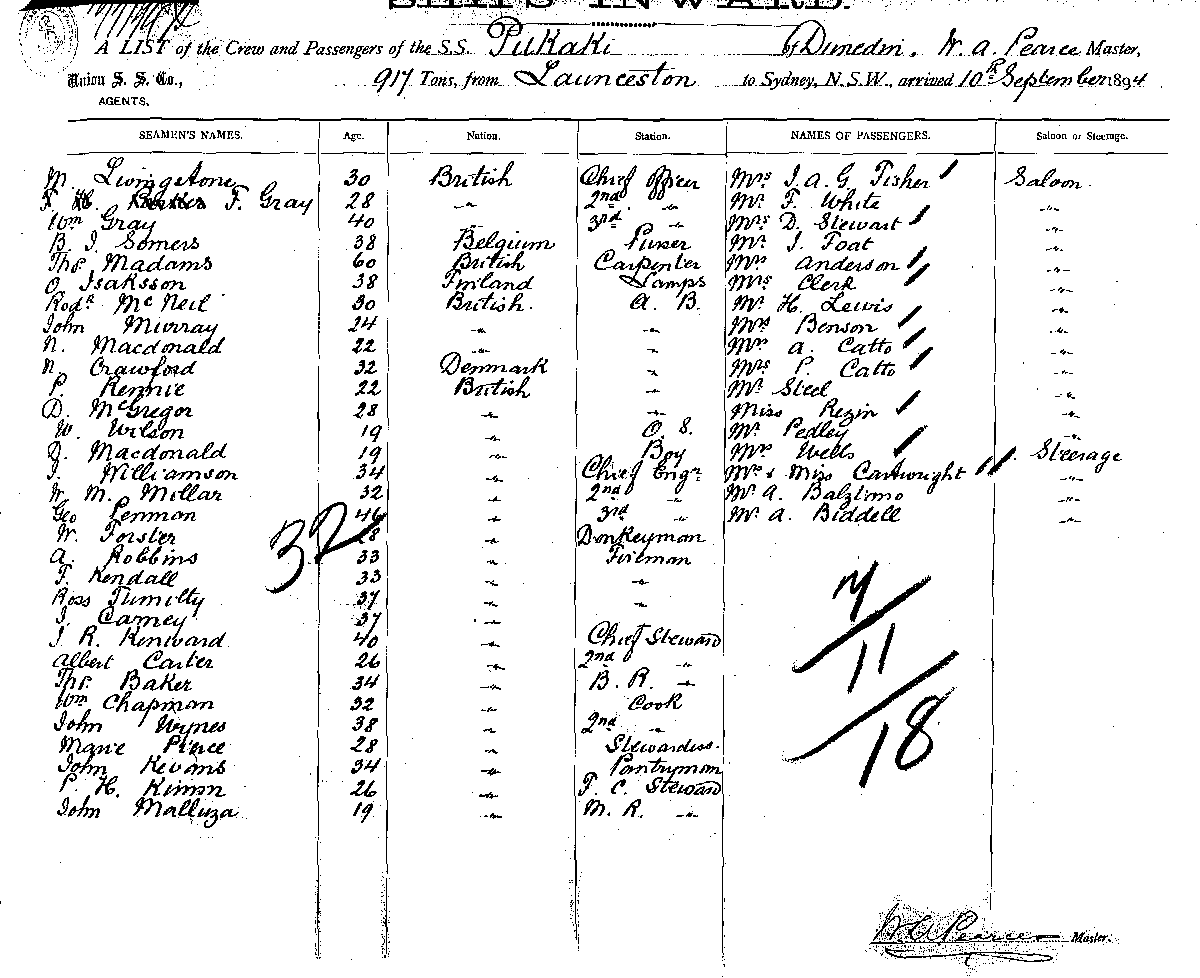 SHIPS INWARD.
A LIST of the Crew and Passengers of the S.S. Pukaki of Dunedin, W. A. Pearce Master,
Union S. S. Co., 917 Tons, from Launceston to Sydney, N.S.W., arrived 10th September 1894
AGENTS.
SEAMEN'S NAMES. Age. Nation. Station. NAMES OF PASSENGERS. Saloon or Steerage.
M. Livingstone 30 British Chief Officer Mrs J. A. G. Fisher Saloon
F. Gray 28 " 2nd " Mr F. White "
Wm Gray 40 3rd " Mrs D. Stewart "
B. J. Somers 38 Belgium Purser Mr J. Toat "
Thos. Madams 60 British Carpenter Mrs Anderson "
O. Isaksson 38 Finland Lamps Mrs Clerk "
Rodk McNeil 30 British A. B. Mr H. Lewis "
John Murray 24 " " Mrs Benson "
N. Macdonald 22 " " Mrs A. Catto "
N. Crawford 32 Denmark " Mrs P. Catto "
P. Rennie 22 British " Mr Steel "
D. McGregor 28 " " Miss Rezin "
W. Wilson 19 " O. S. Mr Pedley "
J. Macdonald 19 " Boy Mrs Wells Steerage
J. Williamson 34 " Chief Engr Mrs & Miss Cartwright "
W. M. Millar 32 " 2nd " Mr A. Balzimo "
Geo Penman 46 " 3rd " Mr A. Biddell "
W. Forster 28 " Donkeyman
A. Robbins 33 " Fireman
F. Kendall 33 " "
Ross Tumilty 37 " "
J. Carney 37 "
J. R. Kenward 40 " Chief Steward
Albert Carter 26 " 2nd "
Thos. Baker 34 " B. R. "
Wm Chapman 32 " Cook
John Wynes 38 " 2nd "
Marie Pierce 28 " Stewardess.
John Kevans 34 " Pantryman
P. H. Kimm 26 " F. C. Steward
John Malluza 19 " M. R. "
32
7
11
18
W. A. Pearce Master.